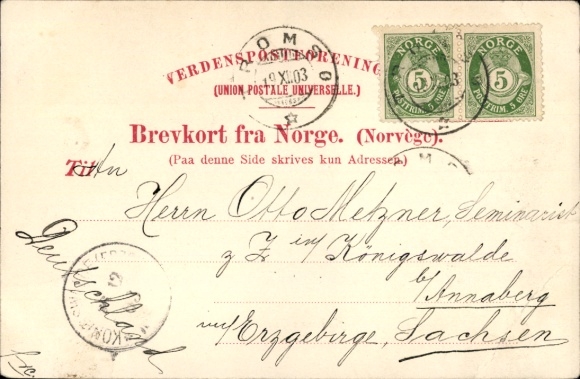 VERDENSPOSTFORENING
(UNION POSTALE UNIVERSELLE.)
TROMSO
19 XII 03
NORGE
5
POSTFRIM. 5 ØRE
NORGE
5
POSTFRIM. 5 ØRE
Brevkort fra Norge. (Norvège).
(Paa denne Side skrives kun Adressen.)
Til An
Herrn Otto Metzner, Seminarist
z Z in Königswalde
b/ Annaberg
im Erzgebirge, Sachsen
Deutschland